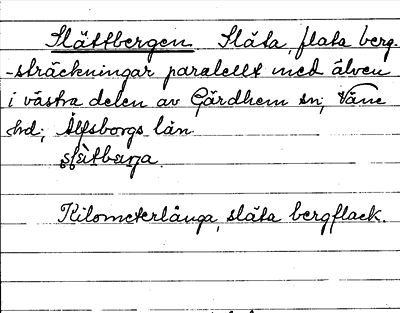 Slättbergen Släta, flata berg-
-sträckningar paralellt med älven
i västra delen av Gärdhem sn, Väne
hd; Älfsborgs län.
slätbærja.
Kilometerlånga, släta bergflack.